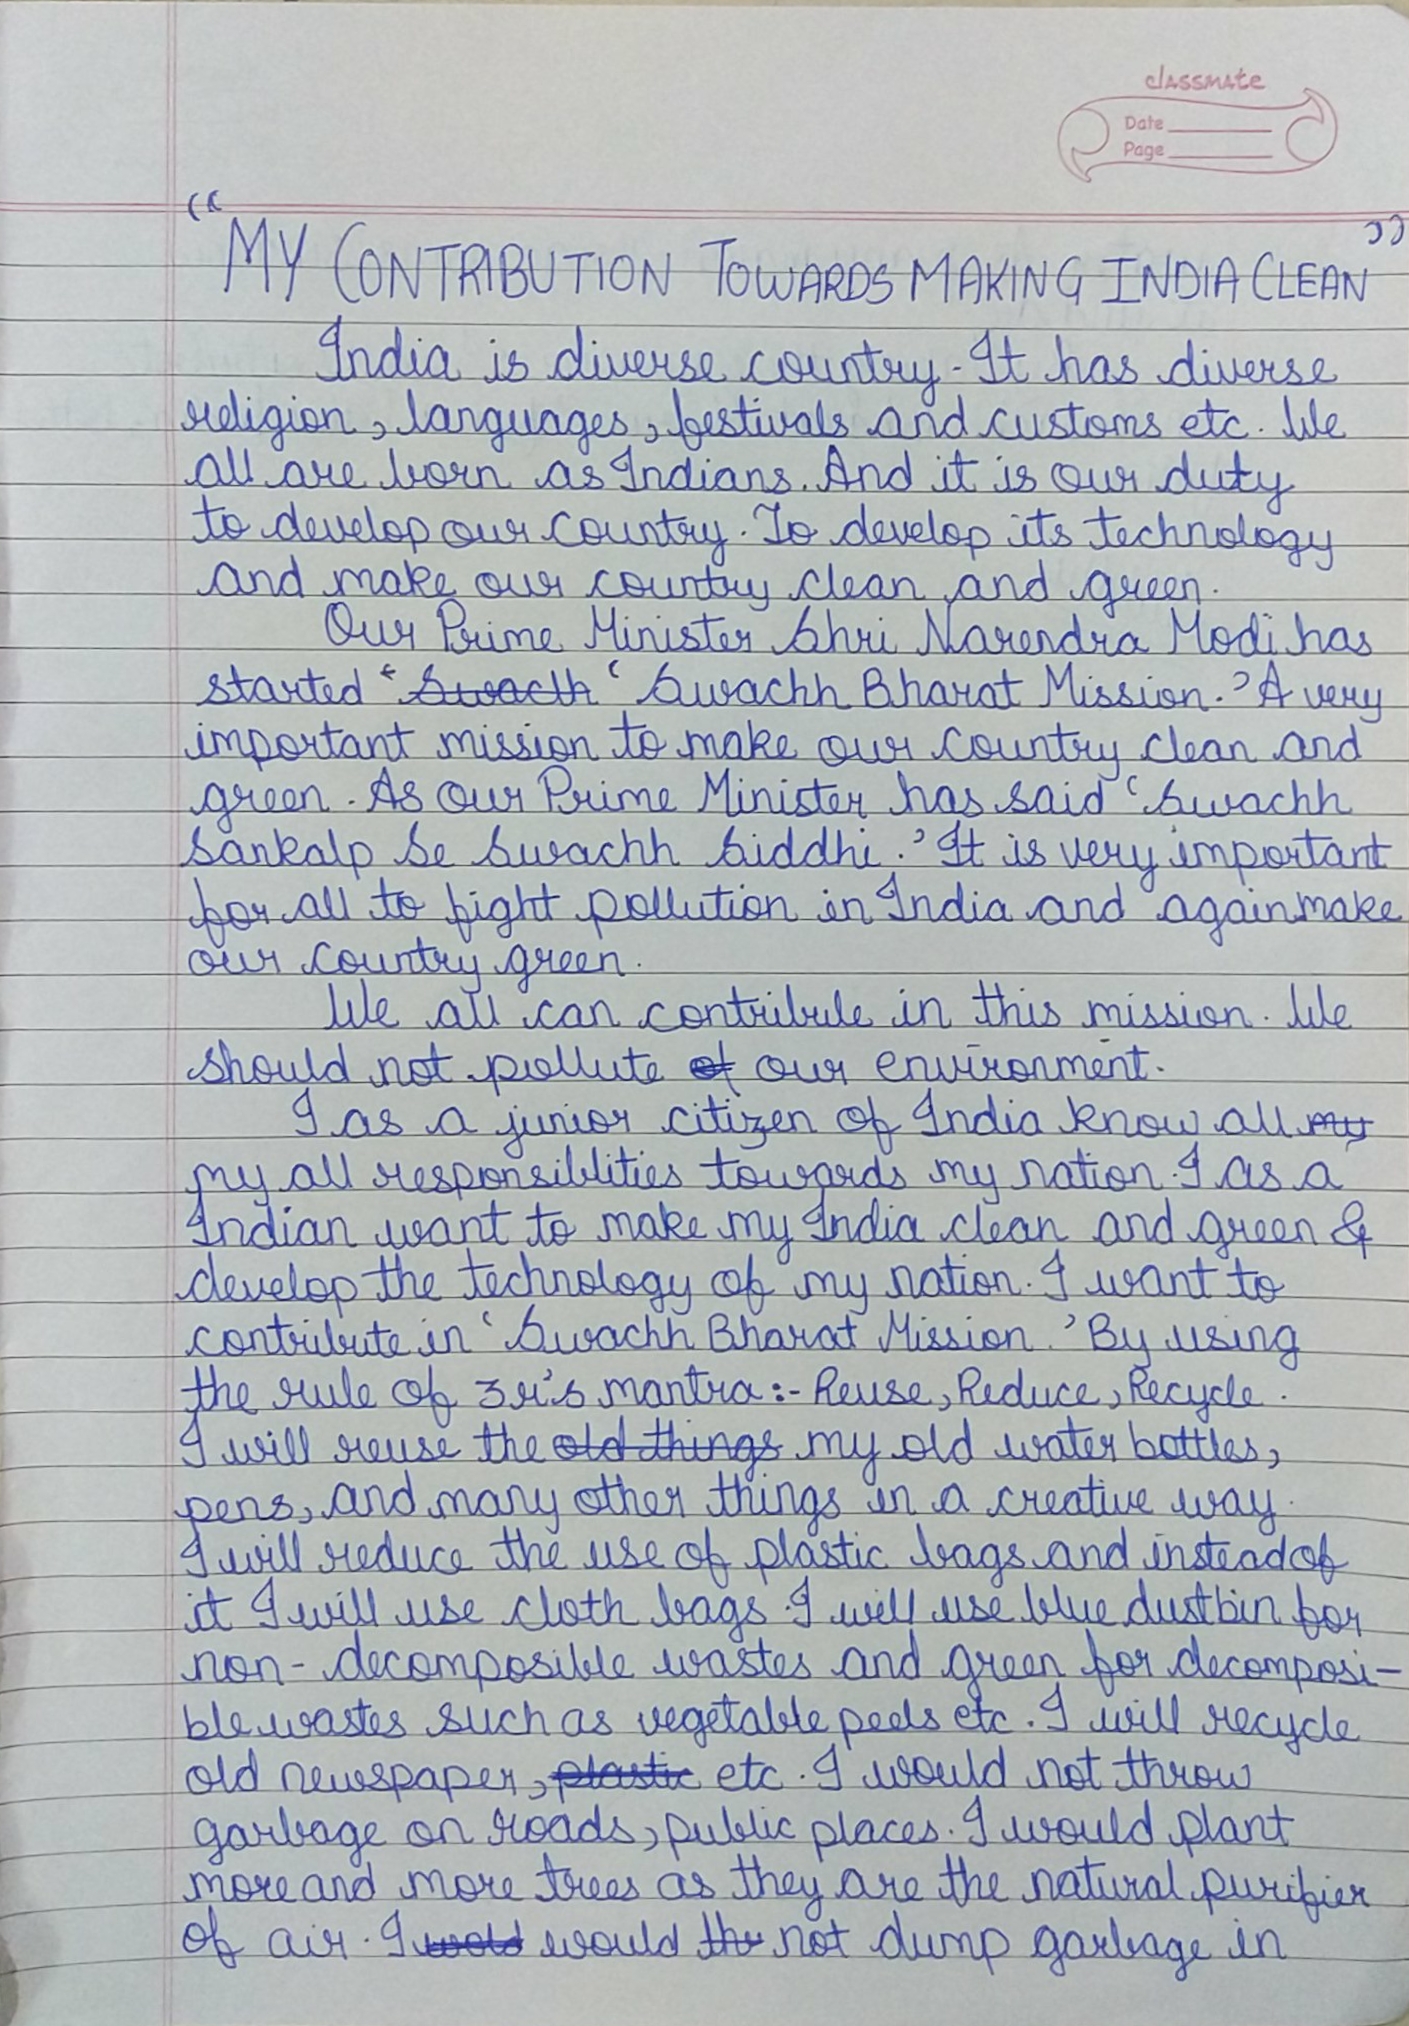 classmate
Date
Page
"MY CONTRIBUTION TOWARDS MAKING INDIA CLEAN"
India is diverse country. It has diverse
religion, languages, festivals and customs etc. We
all are born as Indians. And it is our duty
to develop our country. To develop its technology
and make our country clean and green.
Our Prime Minister Shri Narendra Modi has
started ' Swacth ' Swachh Bharat Mission.' A very
important mission to make our country clean and
green. As our Prime Minister has said 'Swachh
Sankalp Se Swachh Siddhi.' It is very important
for all to fight pollution in India and again make
our country green.
We all can contribute in this mission. We
should not pollute of our environment.
I as a junior citizen of India know all my
my all responsiblities towards my nation. I as a
Indian want to make my India clean and green &
develop the technology of my nation. I want to
contribute in 'Swachh Bharat Mission.' By using
the rule of 3r's mantra:- Reuse, Reduce, Recycle.
I will reuse the old things my old water bottles,
pens, and many other things in a creative way.
I will reduce the use of plastic bags and instead of
it I will use cloth bags. I will use blue dustbin for
non-decomposible wastes and green for decomposi-
ble wastes such as vegetable peels etc. I will recycle
old newspaper, plastic etc. I would not throw
garbage on roads, public places. I would plant
more and more trees as they are the natural purifier
of air. I wold would thr not dump garbage in